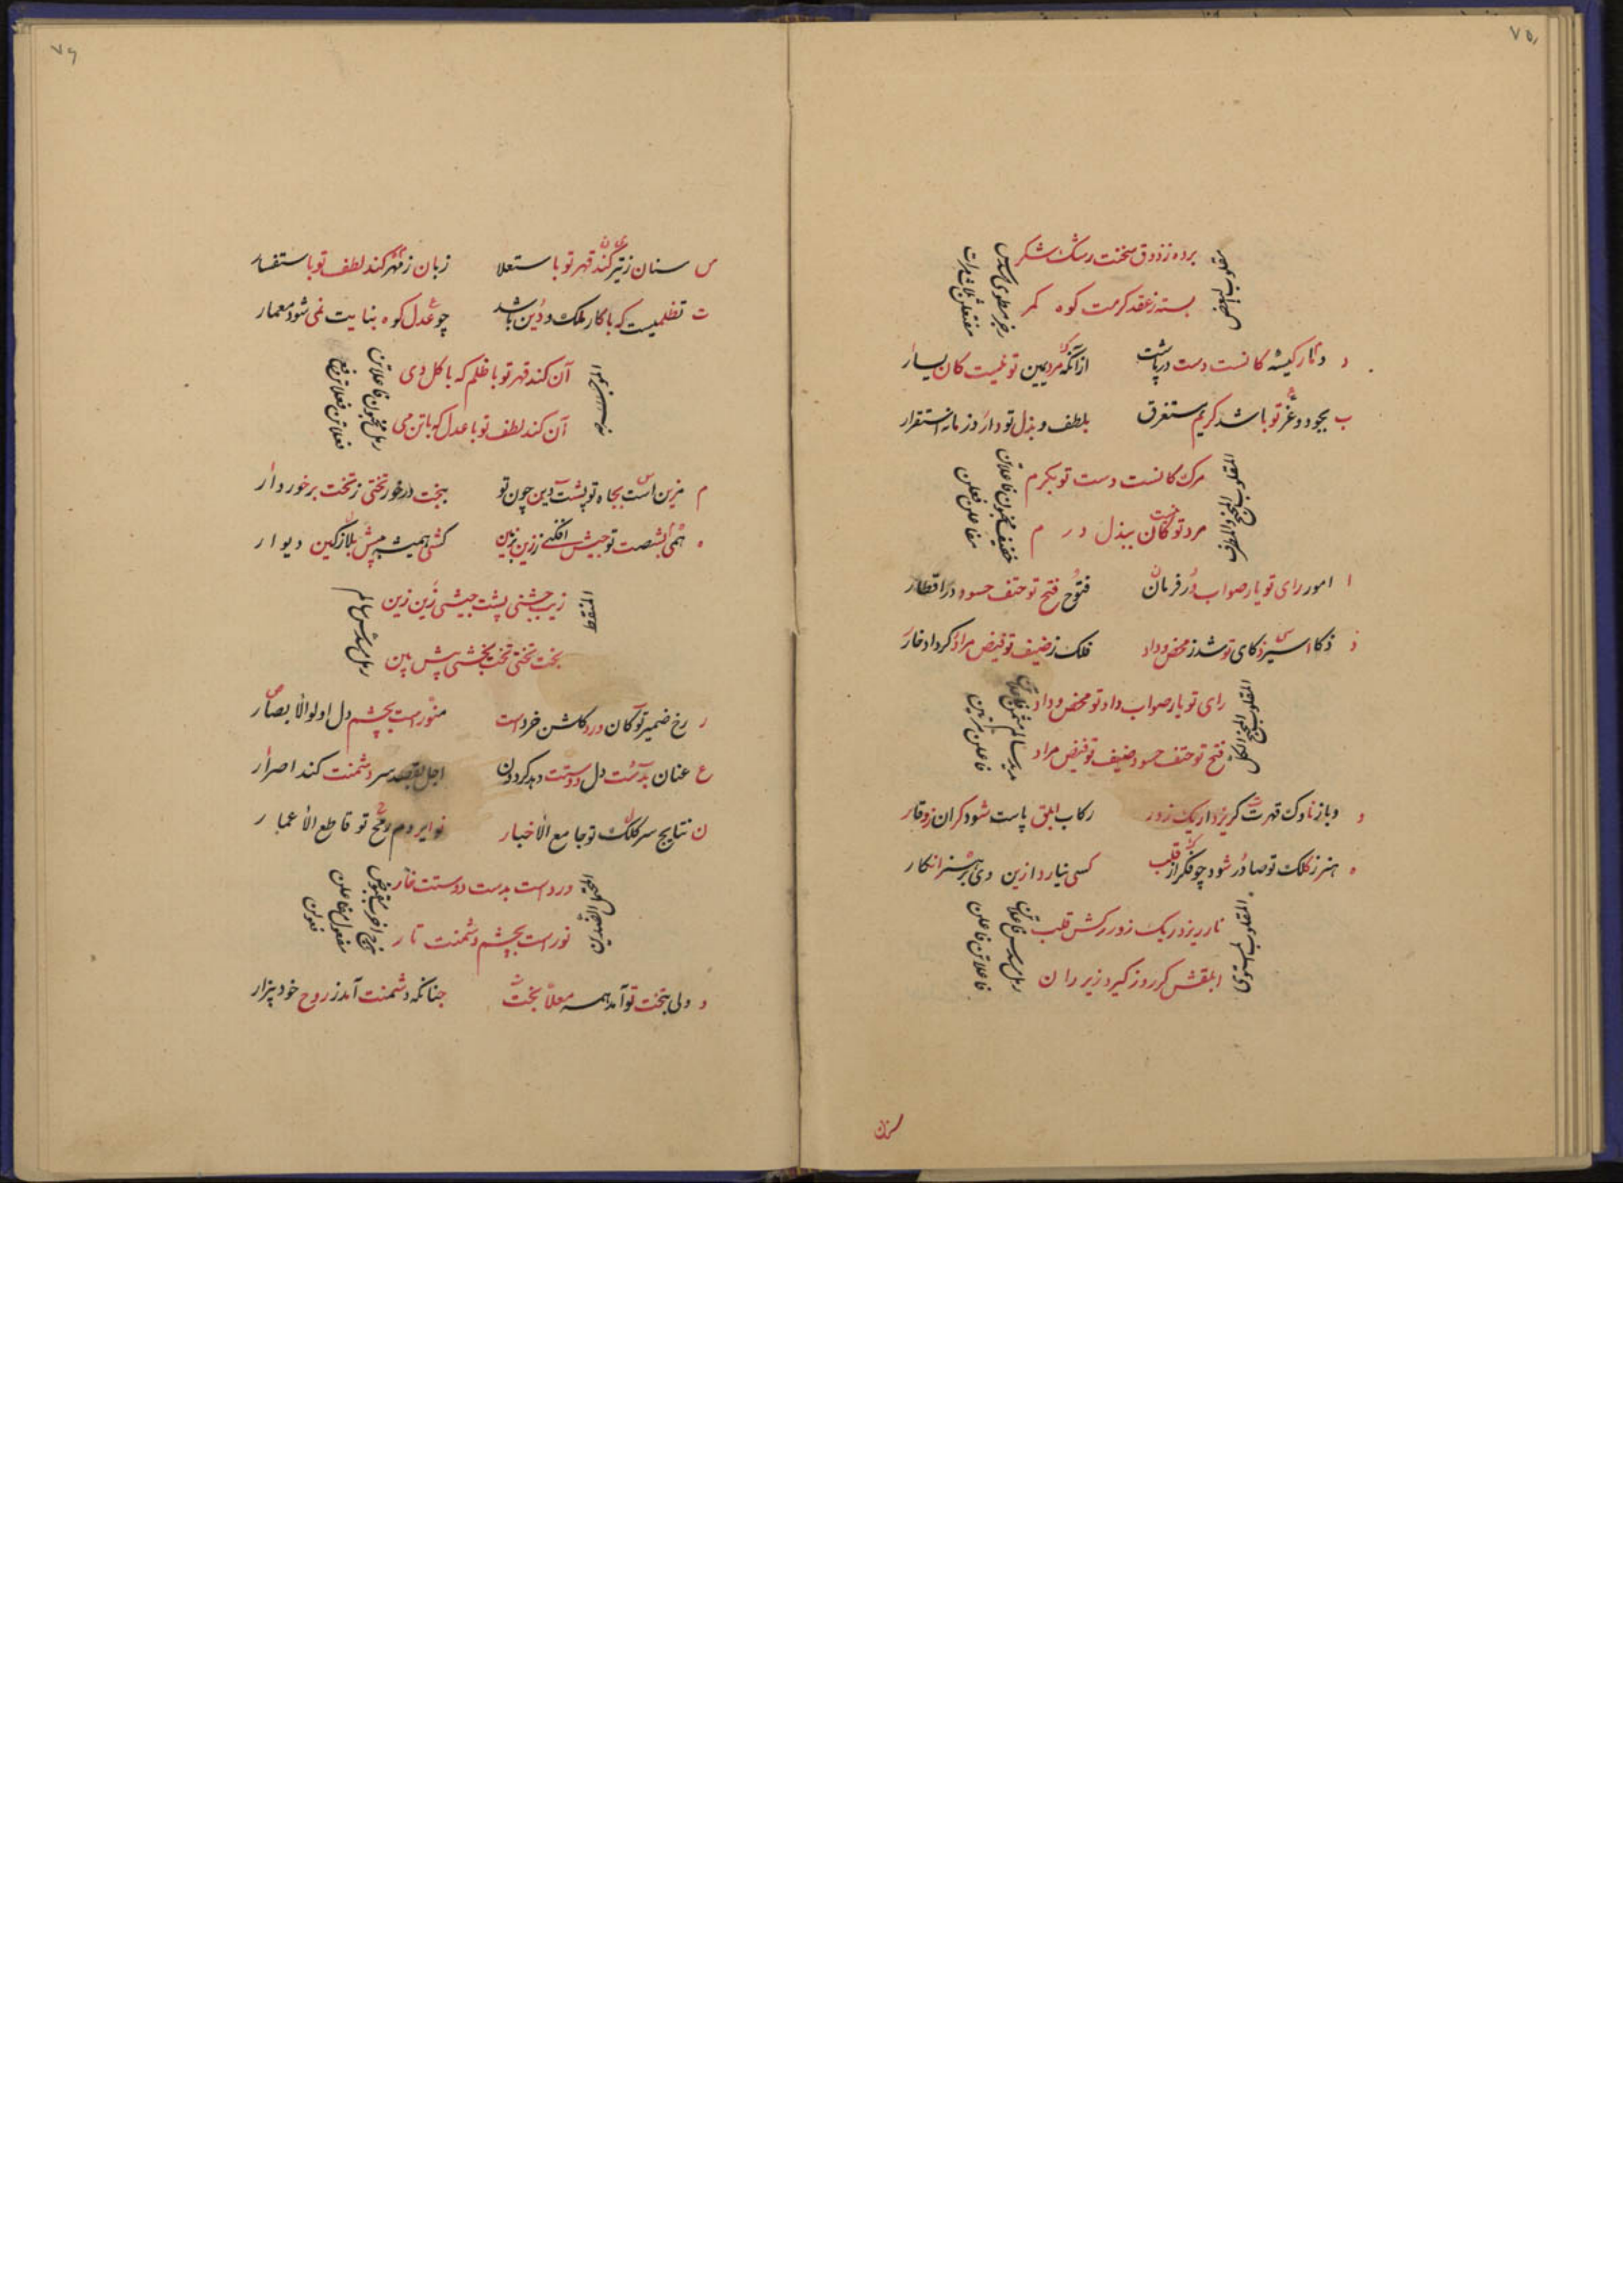 ۷۵
برده ز ذوق سخنت رشک شکر
بسته ز عقد کرمت کوه کمر
مقلوب بعض
رجز مطوی مسدس
مفتعلن ثلاث مرات
د دثار کیسه کانست دست درپاشت
ازآنکه مرد یمین تو نیست کان یسار
ب بجود و غر تو باشد کریم مستغرق
بلطف و بذل تو دارد زمانه استقرار
مرک کانست دست تو بکرم
مرد تو کان ببذل درم
خفیف مخبون فاعلاتن
مفاعلن فعلن
ا امور رای تو یار صواب در فرمان
فتوح فتح تو حتف حسود در اقطار
ذ ذکا اسیر ذکای تو شد ز محض وداد
فلک ز ضیف تو فیض مراد کرد ادخار
رای تو یار صواب داد تو محض وداد
فتح تو حتف حسود ضیف تو فیض مراد
فاعلن مرتین
و وبا ز ناوک قهرت گریزد اریک زور
رکاب ابلق پاست شود کران ز وقار
ه هنر ز کلک تو صادر شود چو فکر از قلب
کسی نیارد ازین دی بر هنر انکار
نار ریزد ریک زور رکش قلب
ابلقش کرروز کیرد زیر ران
المقلوب المستوی
رمل مسدس فاعلاتن
فاعلاتن فاعلن
سنان
۷۶
س سنان ز تیر کند قهر تو با ستعلا
زبان ز مهر کند لطف تو با ستفسار
ت تظلمیست که با کار ملک و دین باشد
چو عدل کوه بنایت نمی شود معمار
آن کند قهر تو با ظلم که با کل دی
آن کند لطف تو با عدل که با تن می
رمل مخبون فاعلاتن
فعلاتن فعلاتن فع
م مزین است بجاه تو پشت دین چون تو
ببخت در خور تختی ز تخت برخوردار
ه همی بشصت تو جیش افکنی ز زین بزمین
کشی همیشه به پیش بلا ز کین دیوار
زیب جشنی پشت جیشی زین زین
بخت تختی تخت بخشی پیش بین
رمل مسدس سالم
ر رخ ضمیر تو کان ورد کلشن خرد است
منور است بچشم دل اولوالابصار
ع عنان بدست دل دوستت دهد کردون
اجل بقصد سر دشمنت کند اصرار
ن نتایج سر کلک تو جامع الاخبار
نوایر دم رمح تو قاطع الاعمار
ورد است بدست دوستت خار
نور است بچشم دشمنت تار
هزج اخرب مقبوض
مفعول مفاعلن
فعولن
و ولی بتخت تو آمد همه معلا بخت
چنانکه دشمنت آمد ز روح خود بیزار